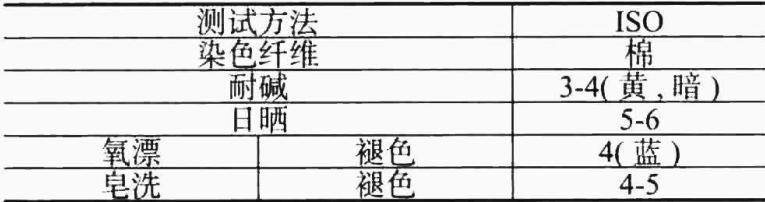 测试方法 ISO
染色纤维 棉
耐碱 3-4(黄,暗)
日晒 5-6
氧漂 褪色 4(蓝)
皂洗 褪色 4-5